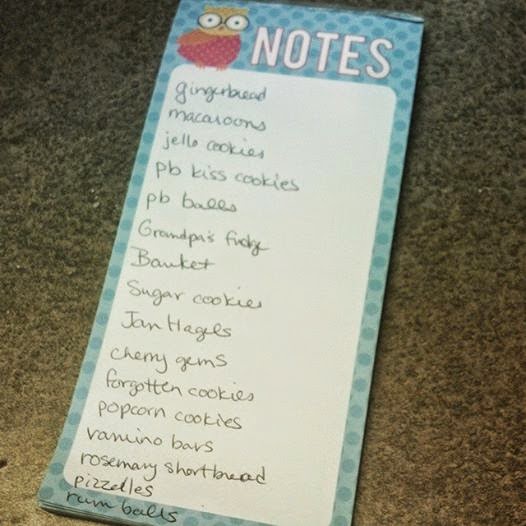 NOTES
gingerbread
macaroons
jello cookies
pb kiss cookies
pb balls
Grandpa's fudge
Banket
Sugar cookies
Jan Hagels
cherry gems
forgotten cookies
popcorn cookies
vanino bars
rosemary shortbread
pizzelles
rum balls